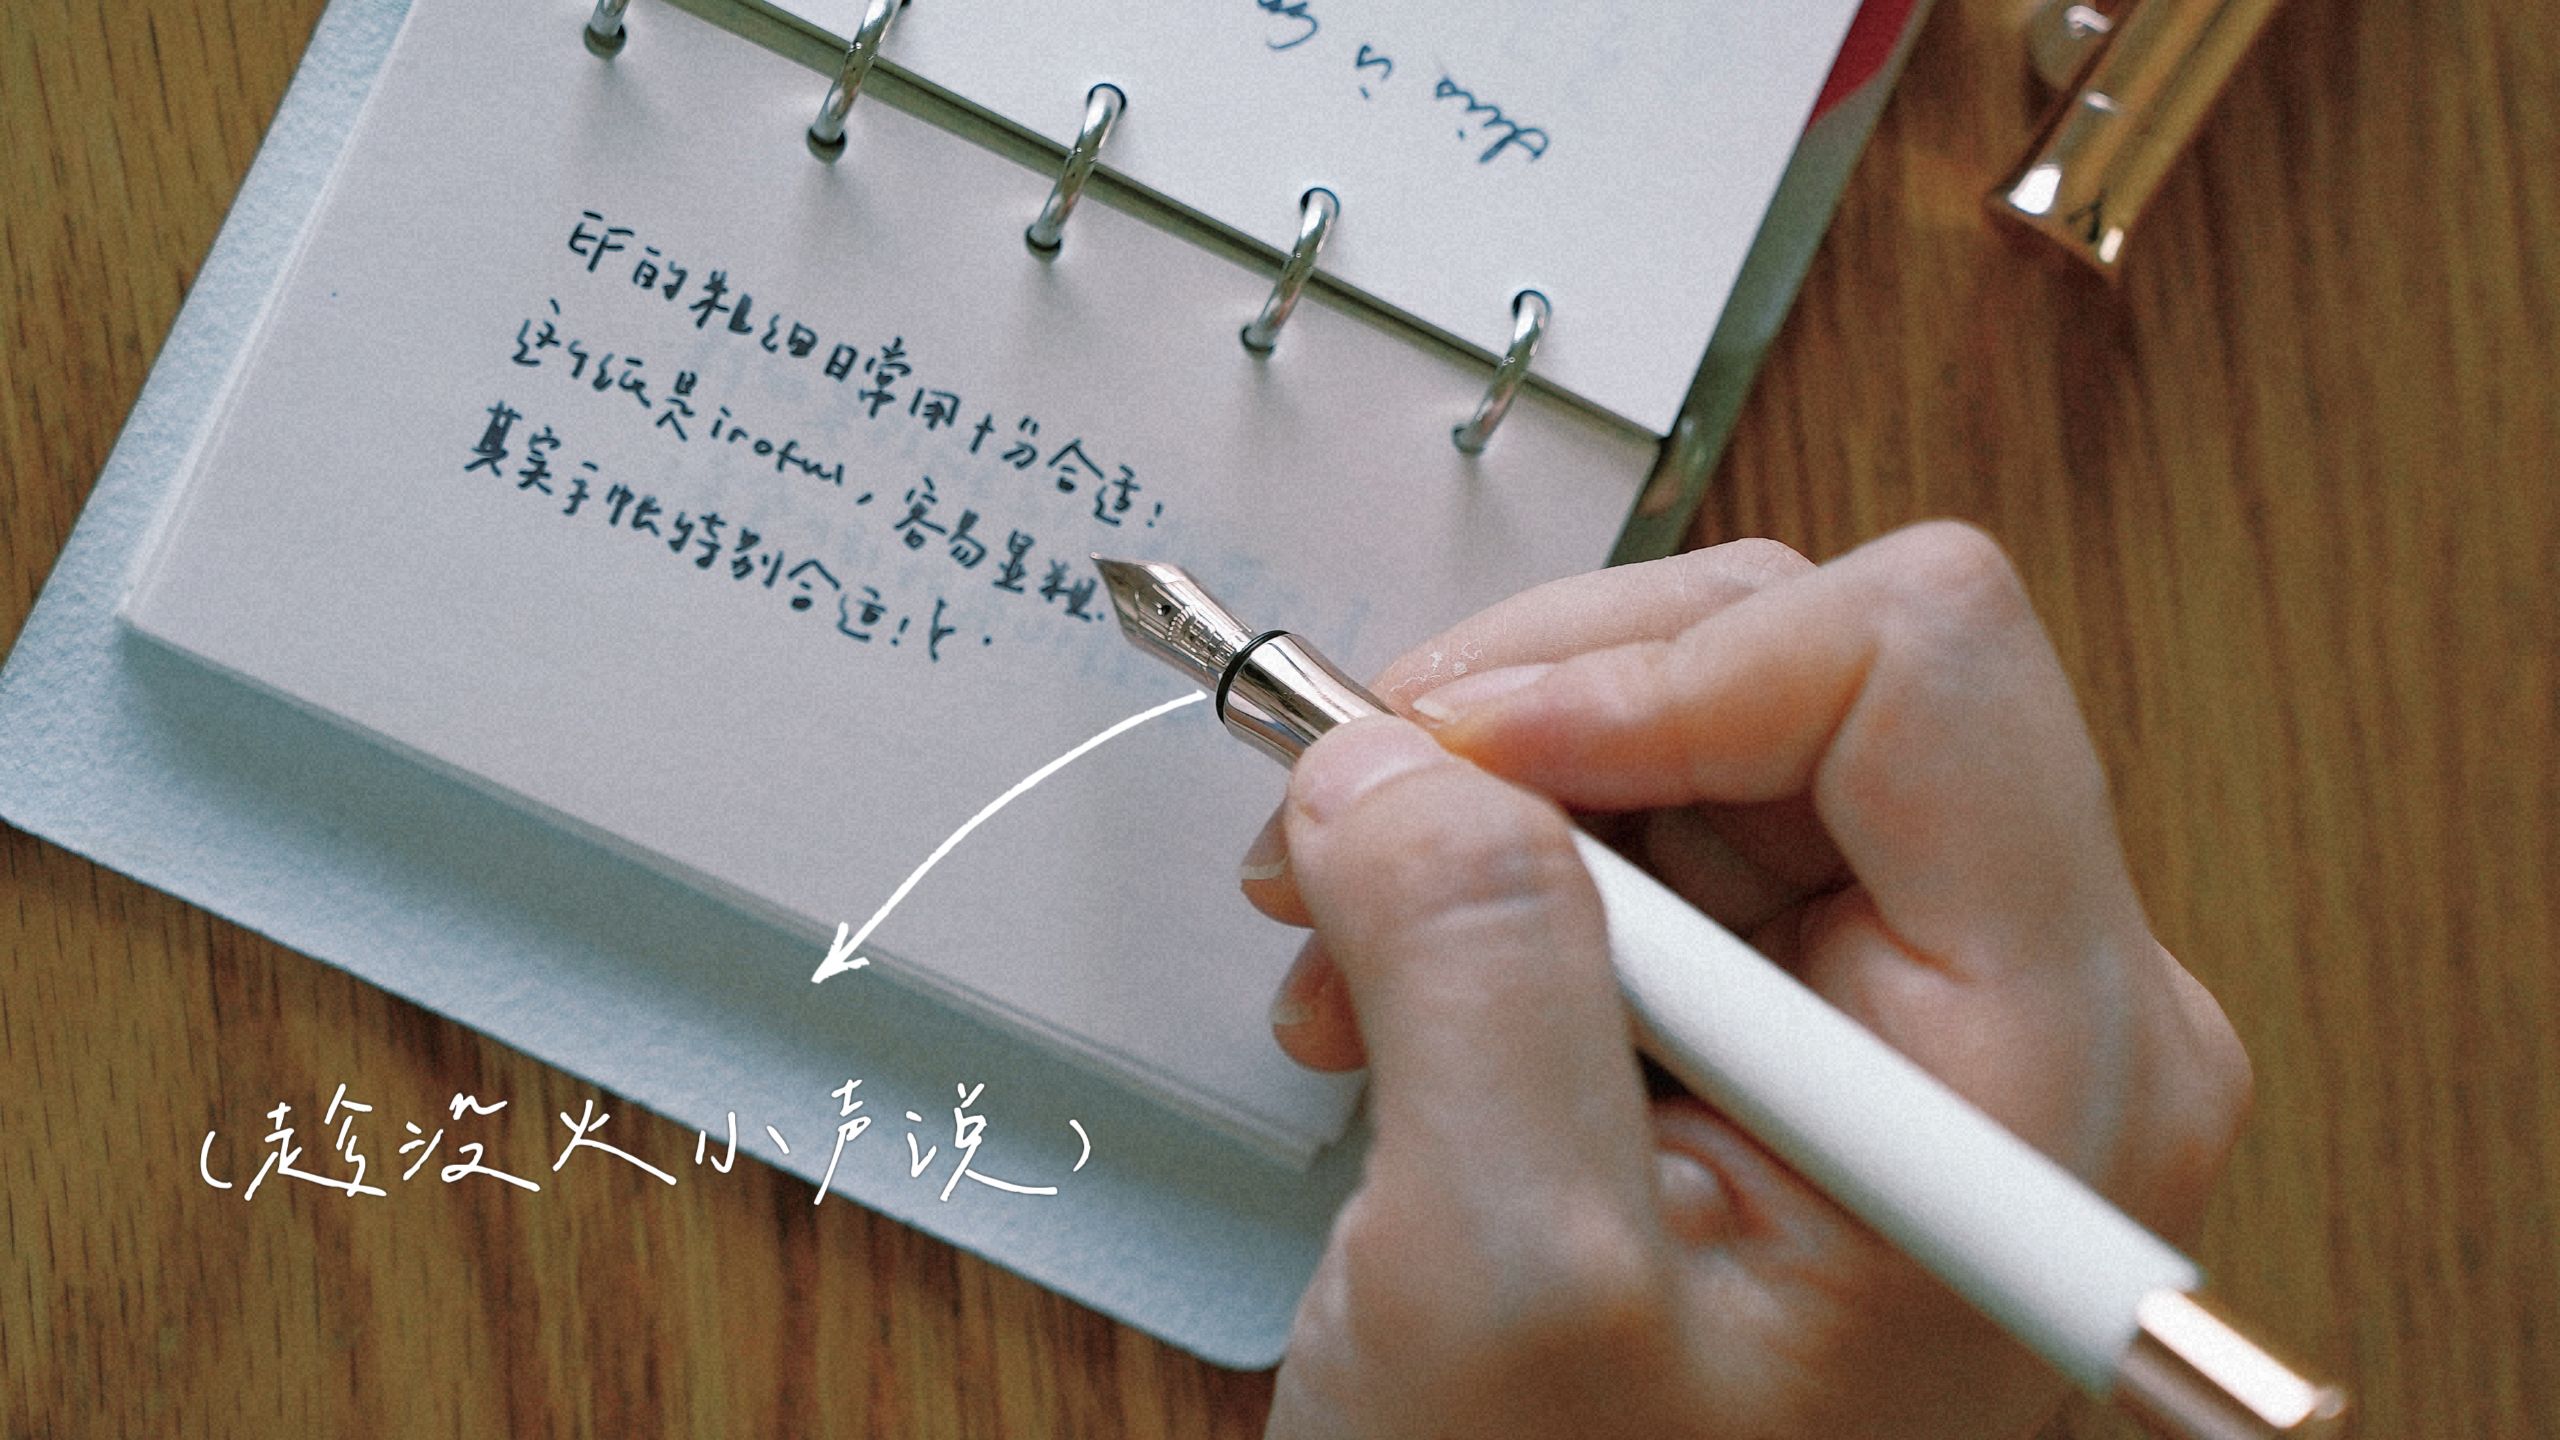 this is
EF的粗细日常用十分合适！
这个纸是iroful，容易显粗.
其实手帐特别合适！
（趁没火小声说）